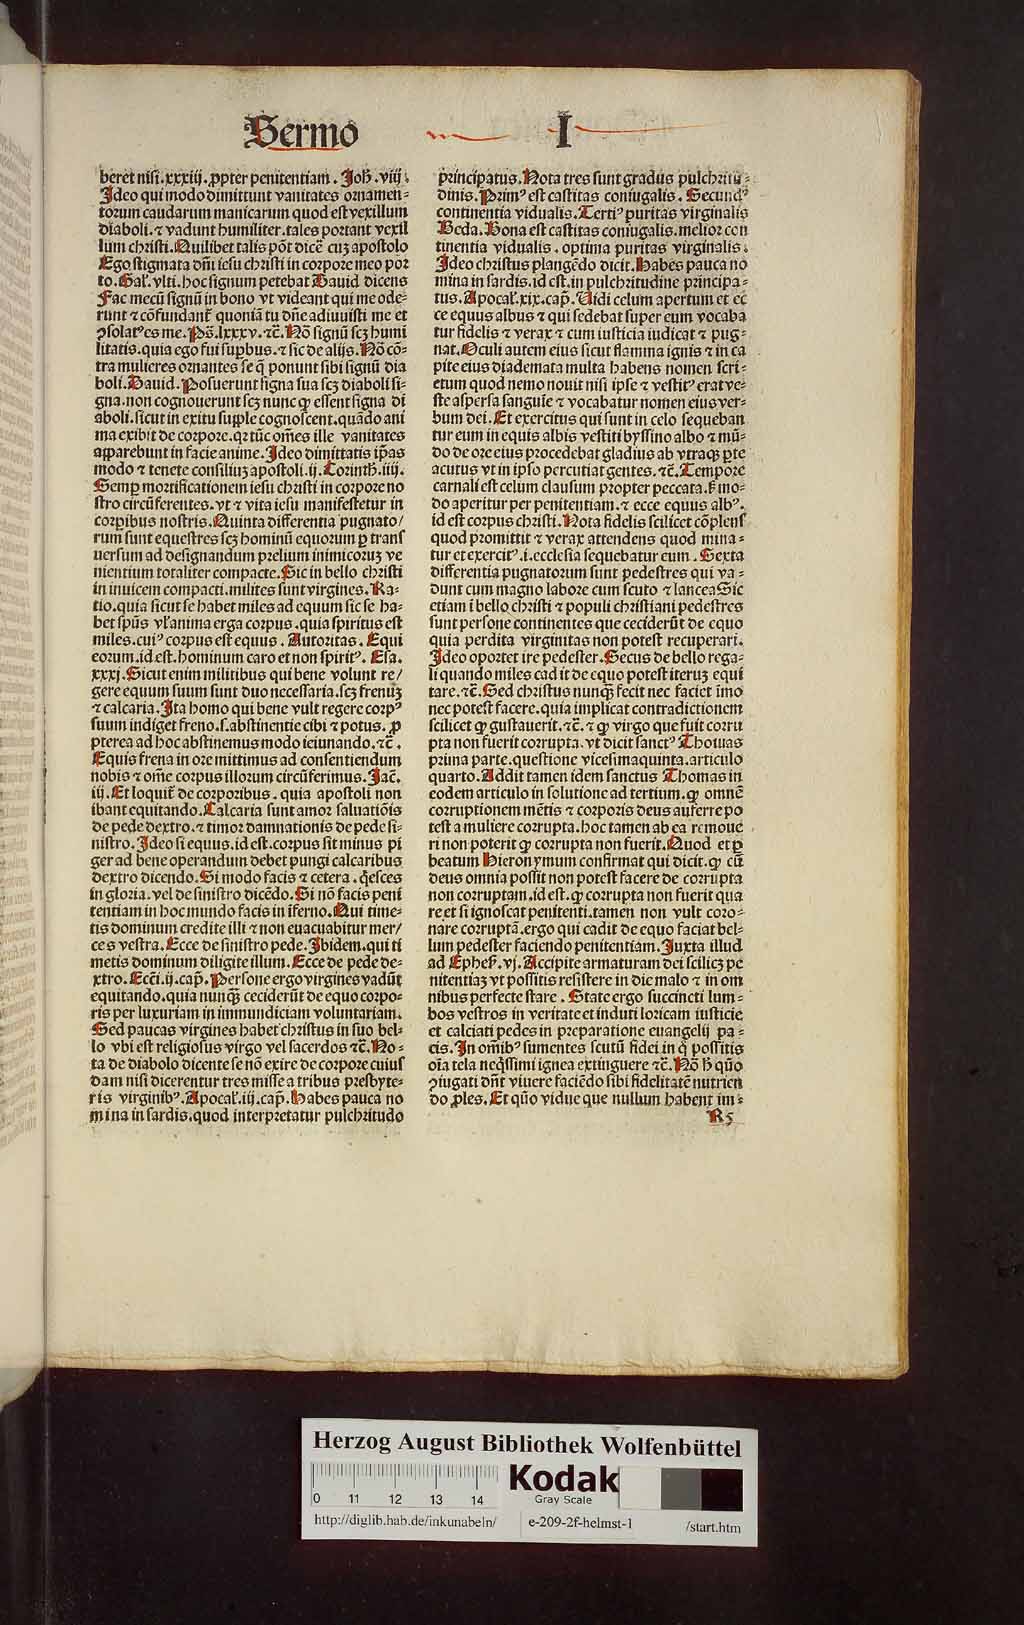 Sermo I
beret nisi .xxxiij. ꝓpter penitentiam. Joh̄. viij.
Jdeo qui modo dimittunt vanitates ornamen⸗
torum caudarum manicarum quod est vexillum
diaboli. ⁊ vadunt humiliter. tales portant vexil
lum christi. Quilibet talis pōt dicē cuꝫ apostolo
Ego stigmata dn̄i iesu christi in corpore meo por
to. Gal̄. vlti. hoc signum petebat Dauid dicens
Fac mecū signū in bono vt videant qui me ode⸗
runt ⁊ cōfundant᷑ quoniā tu dn̄e adiuuisti me et
ꝯsolatꝰes me. Ps̄. lxxxv. ⁊c̄. Nō signū scꝫ humi
litatis. quia ego fui suꝑbus. ⁊ sic de alijs. Nō cō⸗
tra mulieres ornantes se q̄ ponunt sibi signū dia
boli. Dauid. Posuerunt signa sua scꝫ diaboli si⸗
gna. non cognouerunt scꝫ nunc ꝙ essent signa di
aboli. sicut in exitu suꝑple cognoscent. quādo ani
ma exibit de corpore. qꝛ tūc om̄es ille vanitates
apparebunt in facie anime. Jdeo dimittatis ip̄as
modo ⁊ tenete consiliuꝫ apostoli .ij. Corinth̄. iiij.
Semꝑ mortificationem iesu christi in corpore no
stro circūferentes. vt ⁊ vita iesu manifestetur in
corꝑibus nostris. Quinta differentia pugnato/
rum sunt equestres scꝫ hominū equorum ꝑ trans
uersum ad designandum prelium inimicoruꝫ ve
nientium totaliter compacte. Sic in bello christi
in inuicem compacti. milites sunt virgines. Ra⸗
tio. quia sicut se habet miles ad equum sic se ha⸗
bet spūs vl̄ anima erga corpus. quia spiritus est
miles. cuiꝰ corpus est equus. Autoritas. Equi
eorum. id est. hominum caro et non spiritꝰ. Esa.
xxxj. Sicut enim militibus qui bene volunt re/
gere equum suum sunt duo necessaria. scꝫ frenuꝫ
⁊ calcaria. Jta homo qui bene vult regere corpꝰ
suum indiget freno. s. abstinentie cibi ⁊ potus. ꝓ
pterea ad hoc abstinemus modo ieiunando. ⁊c̄.
Equis frena in ore mittimus ad consentiendum
nobis ⁊ om̄e corpus illorum circūferimus. Jac̄.
iij. Et loquit᷑ de corporibus. quia apostoli non
ibant equitando. Calcaria sunt amor saluatiōis
de pede dextro. ⁊ timor damnationis de pede si⸗
nistro. Jdeo si equus. id est. corpus sit minus pi
ger ad bene operandum debet pungi calcaribus
dextro dicendo. Si modo facis ⁊ cetera. q̄esces
in gloria. vel de sinistro dicēdo. Si nō facis peni
tentiam in hoc mundo facis in īferno. Qui time⸗
tis dominum credite illi ⁊ non euacuabitur mer/
ces vestra. Ecce de sinistro pede. Jbidem. qui ti
metis dominum diligite illum. Ecce de pede de⸗
xtro. Ecc̄i. ij. cap̄. Persone ergo virgines vadūt
equitando. quia nunq̄ꝫ ceciderūt de equo corpo⸗
ris per luxuriam in immundiciam voluntariam.
Sed paucas virgines habet christus in suo bel⸗
lo vbi est religiosus virgo vel sacerdos ⁊c̄. No⸗
ta de diabolo dicente se nō exire de corpore cuius
dam nisi dicerentur tres misse a tribus presbyte⸗
ris virginibꝰ. Apocal̄. iij. cap̄. Habes pauca no
mina in sardis. quod interpretatur pulchritudo
principatus. Nota tres sunt gradus pulchritu⸗
dinis. Primꝰ est castitas coniugalis. Secundꝰ
continentia vidualis. Tertiꝰ puritas virginalis
Beda. Bona est castitas coniugalis. melior con
tinentia vidualis. optima puritas virginalis.
Jdeo christus plangēdo dicit. Habes pauca no
mina in sardis. id est. in pulchritudine principa⸗
tus. Apocal̄. xix. cap̄. Uidi celum apertum et ec
ce equus albus ⁊ qui sedebat super eum vocaba
tur fidelis ⁊ verax ⁊ cum iusticia iudicat ⁊ pug⸗
nat. Oculi autem eius sicut flamma ignis ⁊ in ca
pite eius diademata multa habens nomen scri⸗
ptum quod nemo nouit nisi ipse ⁊ vestitꝰ erat ve⸗
ste aspersa sanguie ⁊ vocabatur nomen eius ver⸗
bum dei. Et exercitus qui sunt in celo sequeban
tur eum in equis albis vestiti byssino albo ⁊ mū⸗
do de ore eius procedebat gladius ab vtraqꝫ ꝑte
acutus vt in ipso percutiat gentes. ⁊c̄. Tempore
carnali est celum clausum propter peccata. ꝑ mo⸗
do aperitur per penitentiam. ⁊ ecce equus albꝰ.
id est corpus christi. Nota fidelis scilicet cōplens
quod promittit ⁊ verax attendens quod mina⸗
tur et exercitꝰ. i. ecclesia sequebatur eum. Sexta
differentia pugnatorum sunt pedestres qui va⸗
dunt cum magno labore cum scuto ⁊ lancea Sic
etiam ī bello christi ⁊ populi christiani pedestres
sunt persone continentes que ceciderūt de equo
quia perdita virginitas non potest recuperari.
Jdeo oportet ire pedester. Secus de bello rega⸗
li quando miles cadit de equo potest iteruꝫ equi
tare. ⁊c̄. Sed christus nunq̄ꝫ fecit nec faciet īmo
nec potest facere. quia implicat contradictionem
scilicet ꝙ gustauerit. ⁊c̄. ⁊ ꝙ virgo que fuit corru
pta non fuerit corrupta. vt dicit sanctꝰ Thomas
prima parte. questione vicesimaquinta. articulo
quarto. Addit tamen idem sanctus Thomas in
eodem articulo in solutione ad tertium. ꝙ omnē
corruptionem mētis ⁊ corporis deus auferre po
test a muliere corrupta. hoc tamen ab ea remoue
ri non poterit ꝙ corrupta non fuerit. Quod et ꝑ
beatum Hieronymum confirmat qui dicit. ꝙ cū
deus omnia possit non potest facere de corrupta
non corruptam. id est. ꝙ corrupta non fuerit qua
re et si ignoscat penitenti. tamen non vult coro⸗
nare corruptā. ergo qui cadit de equo faciat bel⸗
lum pedester faciendo penitentiam. Juxta illud
ad Ephes̄. vj. Accipite armaturam dei scilicꝫ pe
nitentiaꝫ vt possitis resistere in die malo ⁊ in om
nibus perfecte stare. State ergo succincti lum⸗
bos vestros in veritate et induti loricam iusticie
et calciati pedes in preparatione euangelij pa⸗
cis. Jn om̄ibꝰ sumentes scutū fidei in q̄ possitis
oīa tela neq̄ssimi ignea extinguere ⁊c̄. Nō ꝙ quō
ꝯiugati dn̄t viuere faciēdo sibi fidelitatē nutrien
do ꝓles. Et quō vidue que nullum habent im⸗
R5
Herzog August Bibliothek Wolfenbüttel
0 11 12 13 14
Kodak
Gray Scale
http://diglib.hab.de/inkunabeln/ e-209-2f-helmst-1 /start.htm